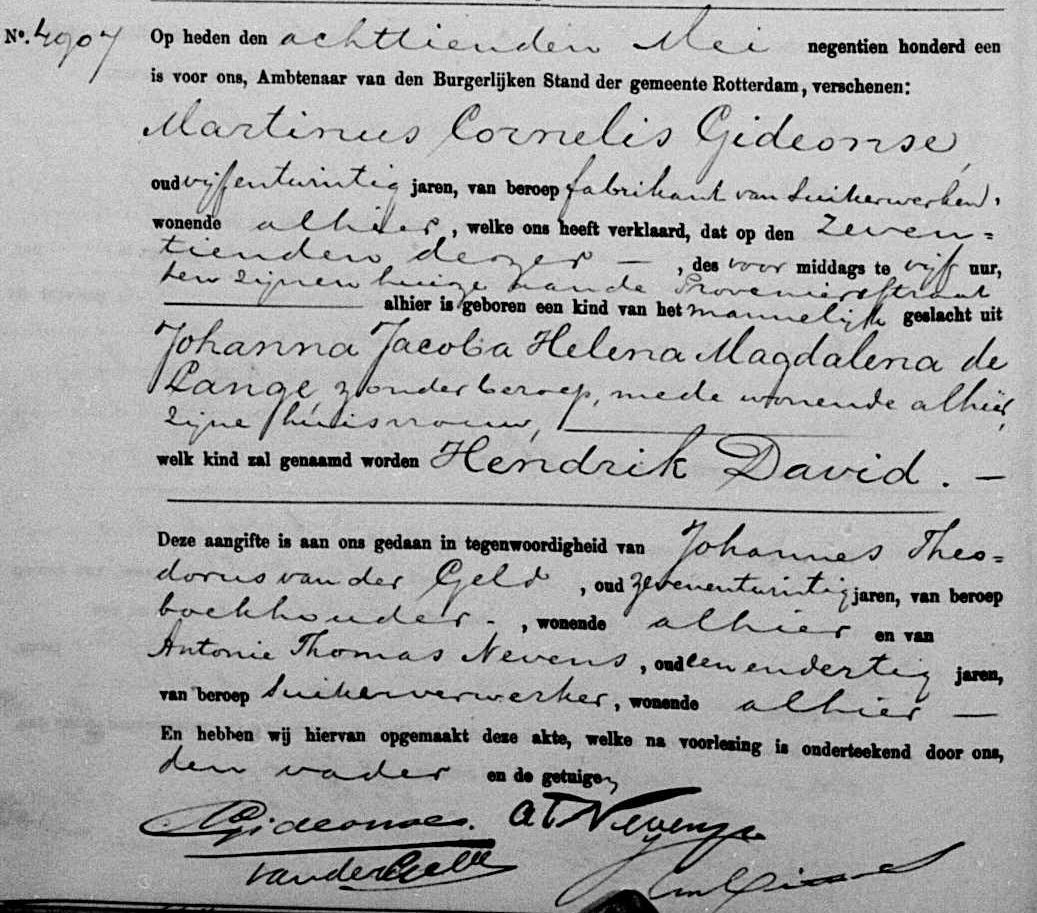 No. 4907 Op heden den achttienden Mei negentien honderd een
is voor ons, Ambtenaar van den Burgerlijken Stand der gemeente Rotterdam, verschenen:
Martinus Cornelis Gideonse,
oud vijfentwintig jaren, van beroep fabrikant van suikerwerken,
wonende alhier, welke ons heeft verklaard, dat op den zeven=
tienden dezer —, des voor middags te vijf uur,
ten zijnen huize aan de Provenierstraat
alhier is geboren een kind van het mannelijk geslacht uit
Johanna Jacoba Helena Magdalena de
Lange zonder beroep, mede wonende alhier,
zijne huisvrouw,
welk kind zal genaamd worden Hendrik David. —
Deze aangifte is aan ons gedaan in tegenwoordigheid van Johannes Theo=
dorus van der Geld, oud zevenentwintig jaren, van beroep
boekhouder -, wonende alhier en van
Antonie Thomas Nevens, oud eenendertig jaren,
van beroep suikerverwerker, wonende alhier —
En hebben wij hiervan opgemaakt deze akte, welke na voorlezing is onderteekend door ons,
den vader en de getuigen
Gideonse. AT Nevens
van der Geld